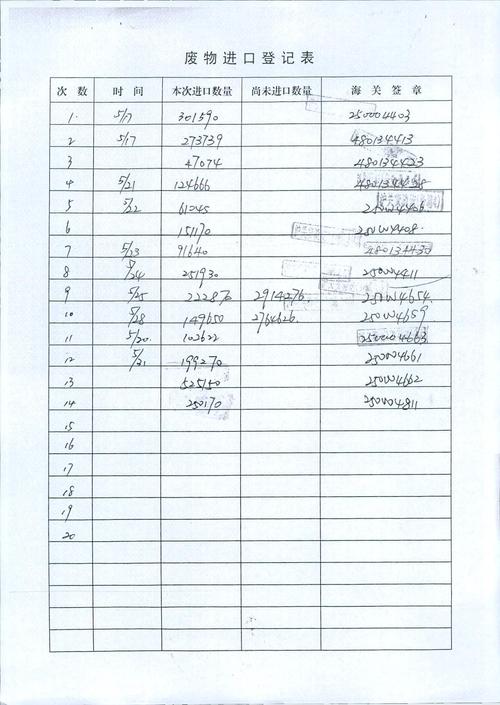 废物进口登记表
次 数 时 间 本次进口数量 尚未进口数量 海 关 签 章
1. 5/17 301590 250004403
2 5/17 273739 480134413
3 47074 480134423
4 5/21 124666
5 5/22 61045 250004406
6 151170 250004408.
7 5/23 91640 480134430
8 5/24 251930 250004411
9 5/25 222876 2914276 250004654.
10 5/28 149650 2764626. 250004659.
11 5/20. 102622 250004663
12 5/21 199270 250004661
13 525150 250004662
14 250170 250004811
15
16
17
18
19
20